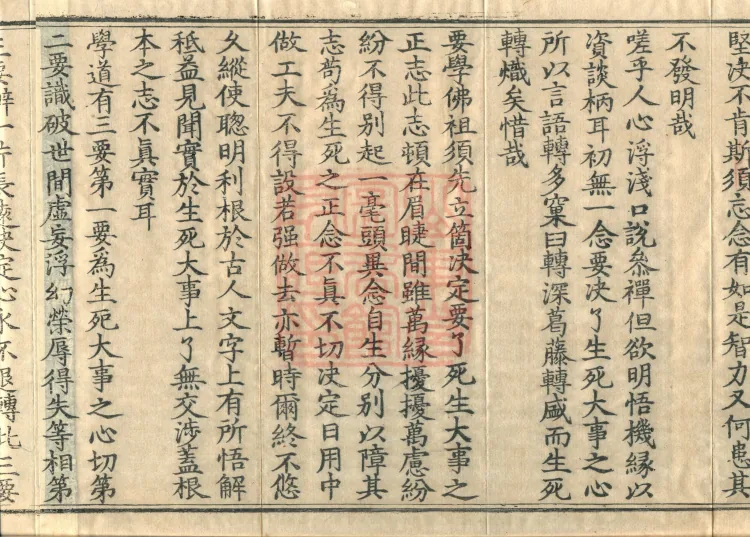 堅決不肯斯須忘念有如是智力又何患其
不發明哉
嗟乎人心浮淺口說叅禪但欲明悟機縁以
資談柄耳初無一念要决了生死大事之心
所以言語轉多窠臼轉深葛藤轉盛而生死
轉熾矣惜哉
要學佛祖須先立箇决定要了死生大事之
正志此志頓在眉睫間雖萬縁擾擾萬慮紛
紛不得别起一毫頭異念自生分别以障其
志苟爲生死之正念不真不切决定日用中
做工夫不得設若强做去亦暫時爾終不悠
久縱使聦明利根於古人文字上有所悟解
秪益見聞實於生死大事上了無交渉蓋根
本之志不眞實耳
學道有三要第一要爲生死大事之心切第
二要識破世間虛妄浮幻榮辱得失等相第
三要辦一片長遠决定心永不退轉此三要